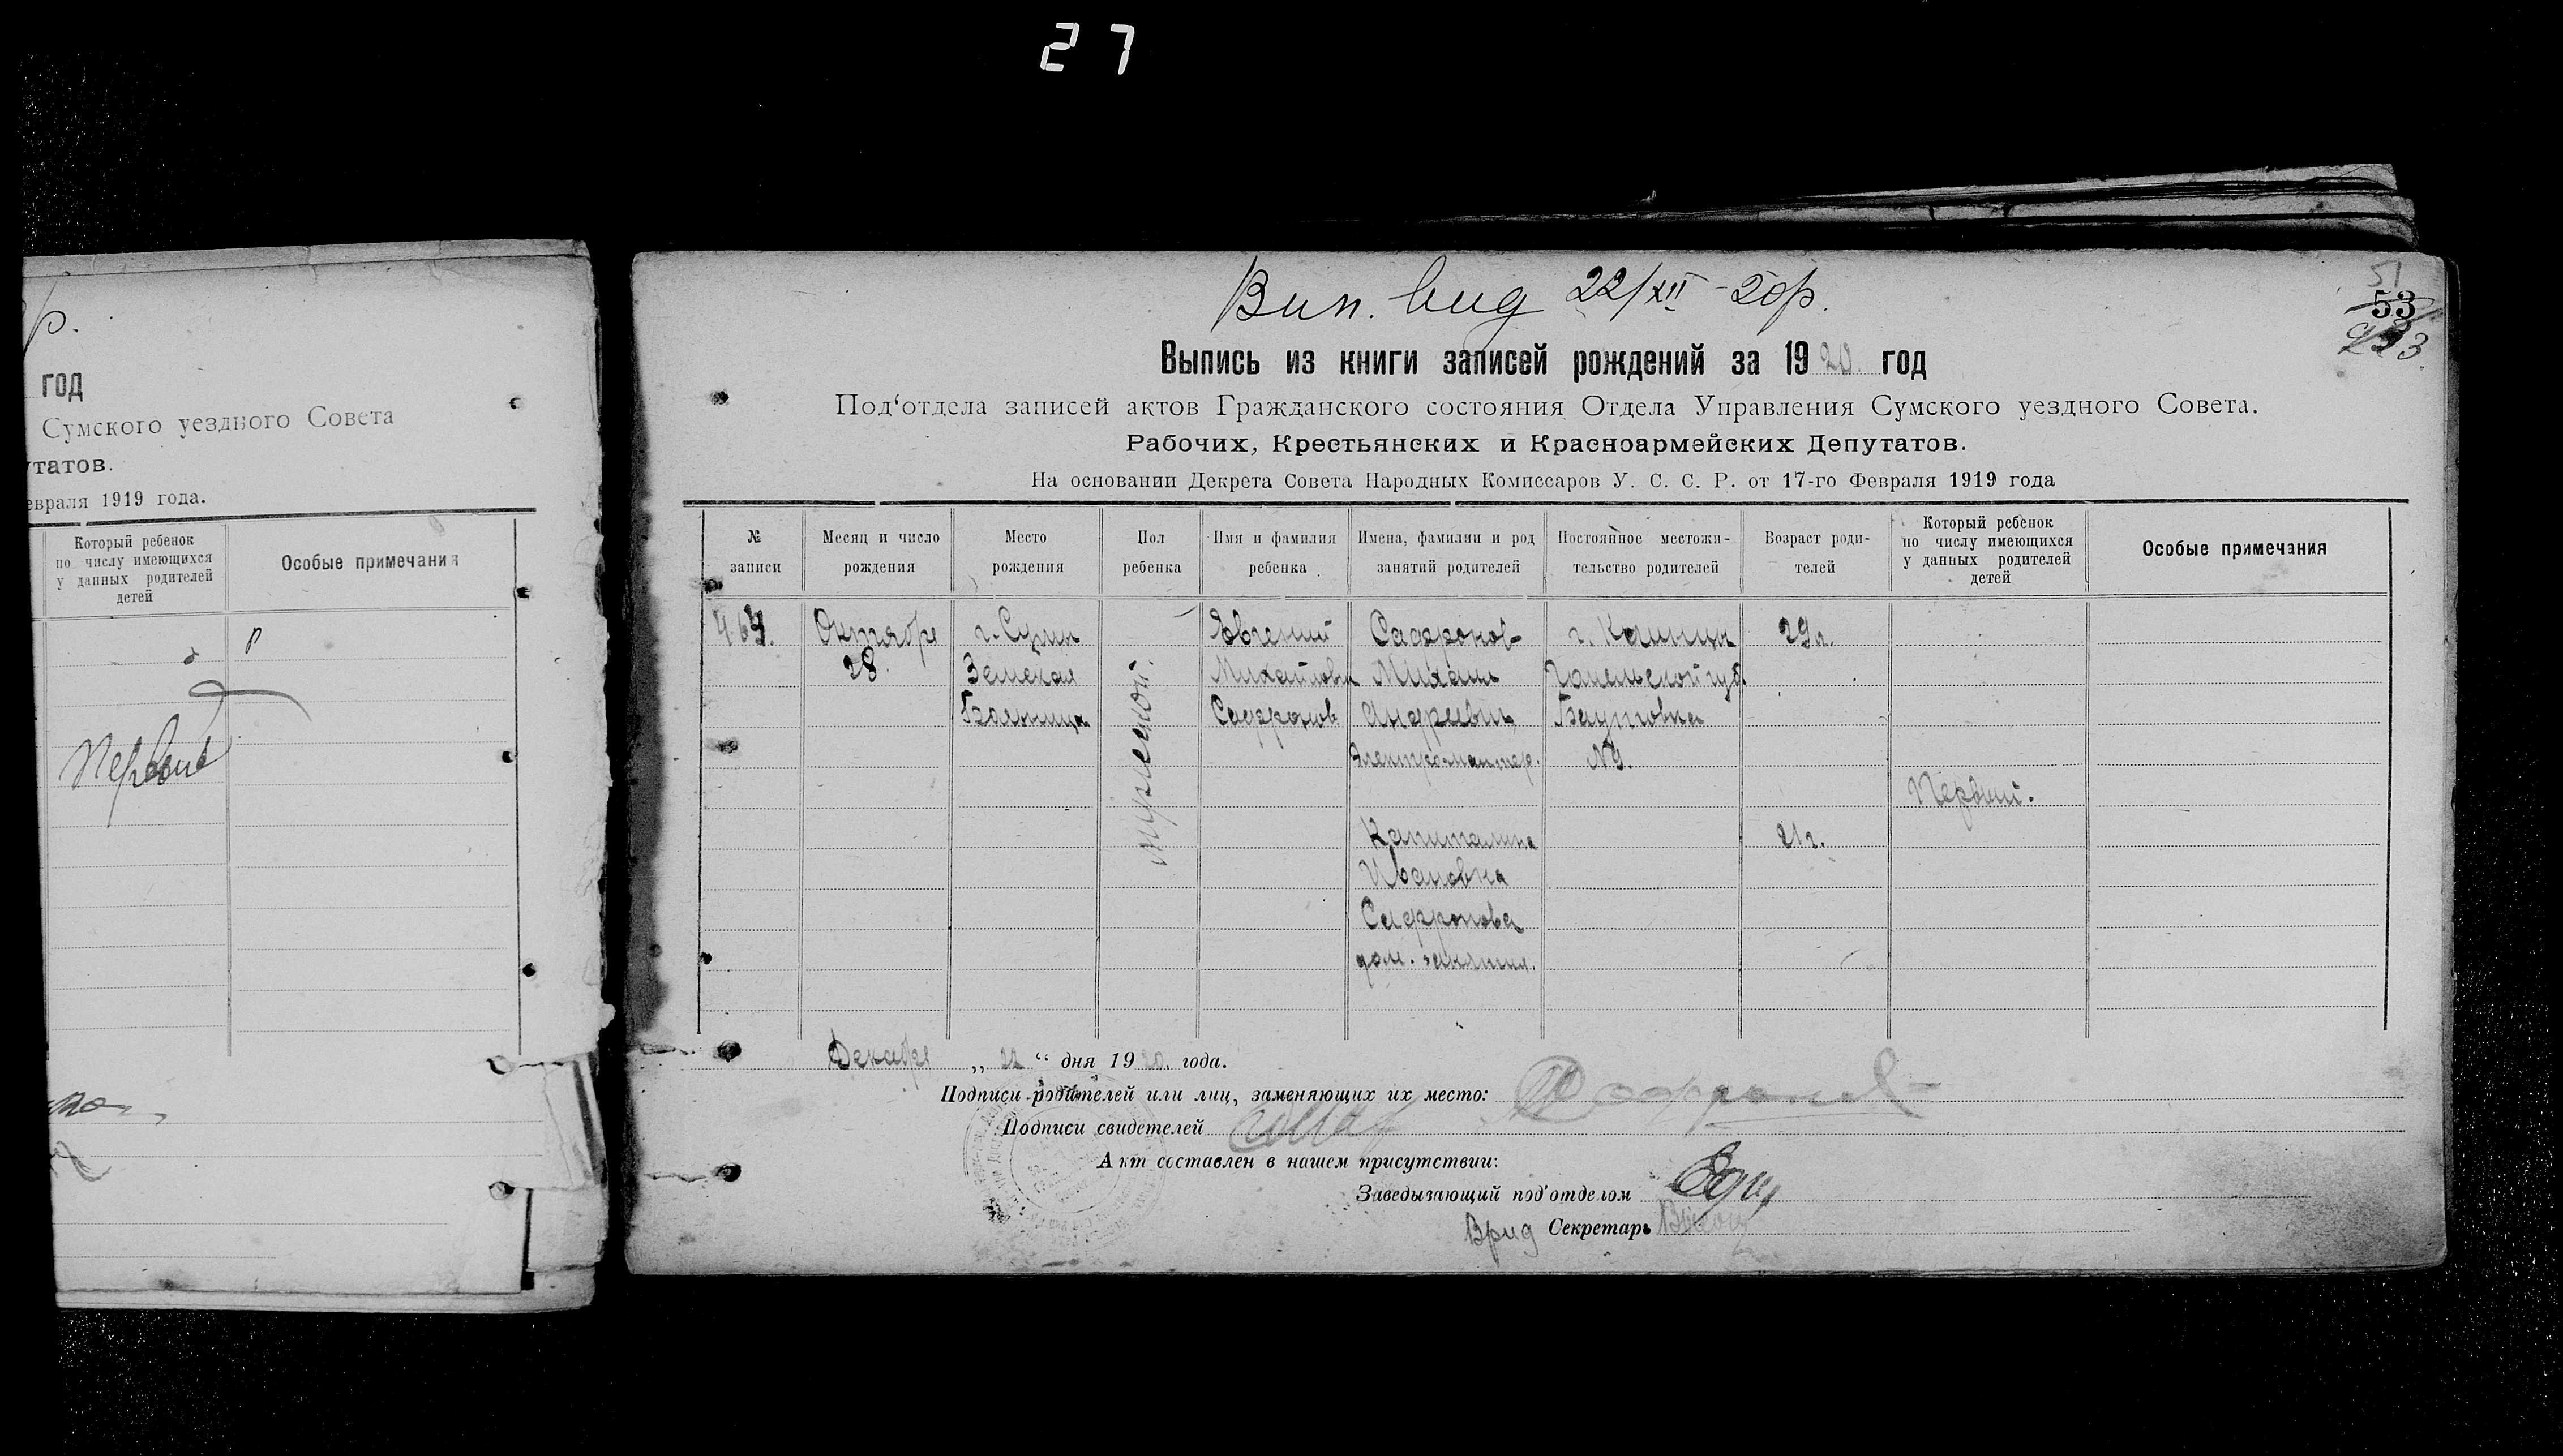 27
р.
год
Сумского уездного Совета
утатов.
евраля 1919 года.
Который ребенок
по числу имеющихся
у данных родителей
детей
Особые примечания
Первый
51
53
Вип. вид 22/XII-20р.
Выпись из книги записей рождений за 1920 год
Под‘отдела записей актов Гражданского состояния Отдела Управления Сумского уездного Совета.
Рабочих, Крестьянских и Красноармейских Депутатов.
На основании Декрета Совета Народных Комиссаров У. С. С. Р. от 17-го Февраля 1919 года
№
записи
Месяц и число
рождения
Место
рождения
Пол
ребенка
Имя и фамилия
ребенка
Имена, фамилии и род
занятий родителей
Постоянное местожи-
тельство родителей
Возраст роди-
телей
Который ребенок
по числу имеющихся
у данных родителей
детей
Особые примечания
Октября
28.
г. Сумы
Земская
Больница
мужеской.
Евгений
Михайлович
Сафронов
Сафронов
Михаил
Андреевич
Электромантер.
Капиталина
Ивановна
Сафронова
дом. занятия.
г.
губ.
№9.
29л.
21г.
Первый.
Декабря „ 22 “ дня 1920. года.
Подписи родителей или лиц, заменяющих их место: Сафронов
Подписи свидетелей
Акт составлен в нашем присутствии:
Заведывающий под'отделом
Врид Секретарь